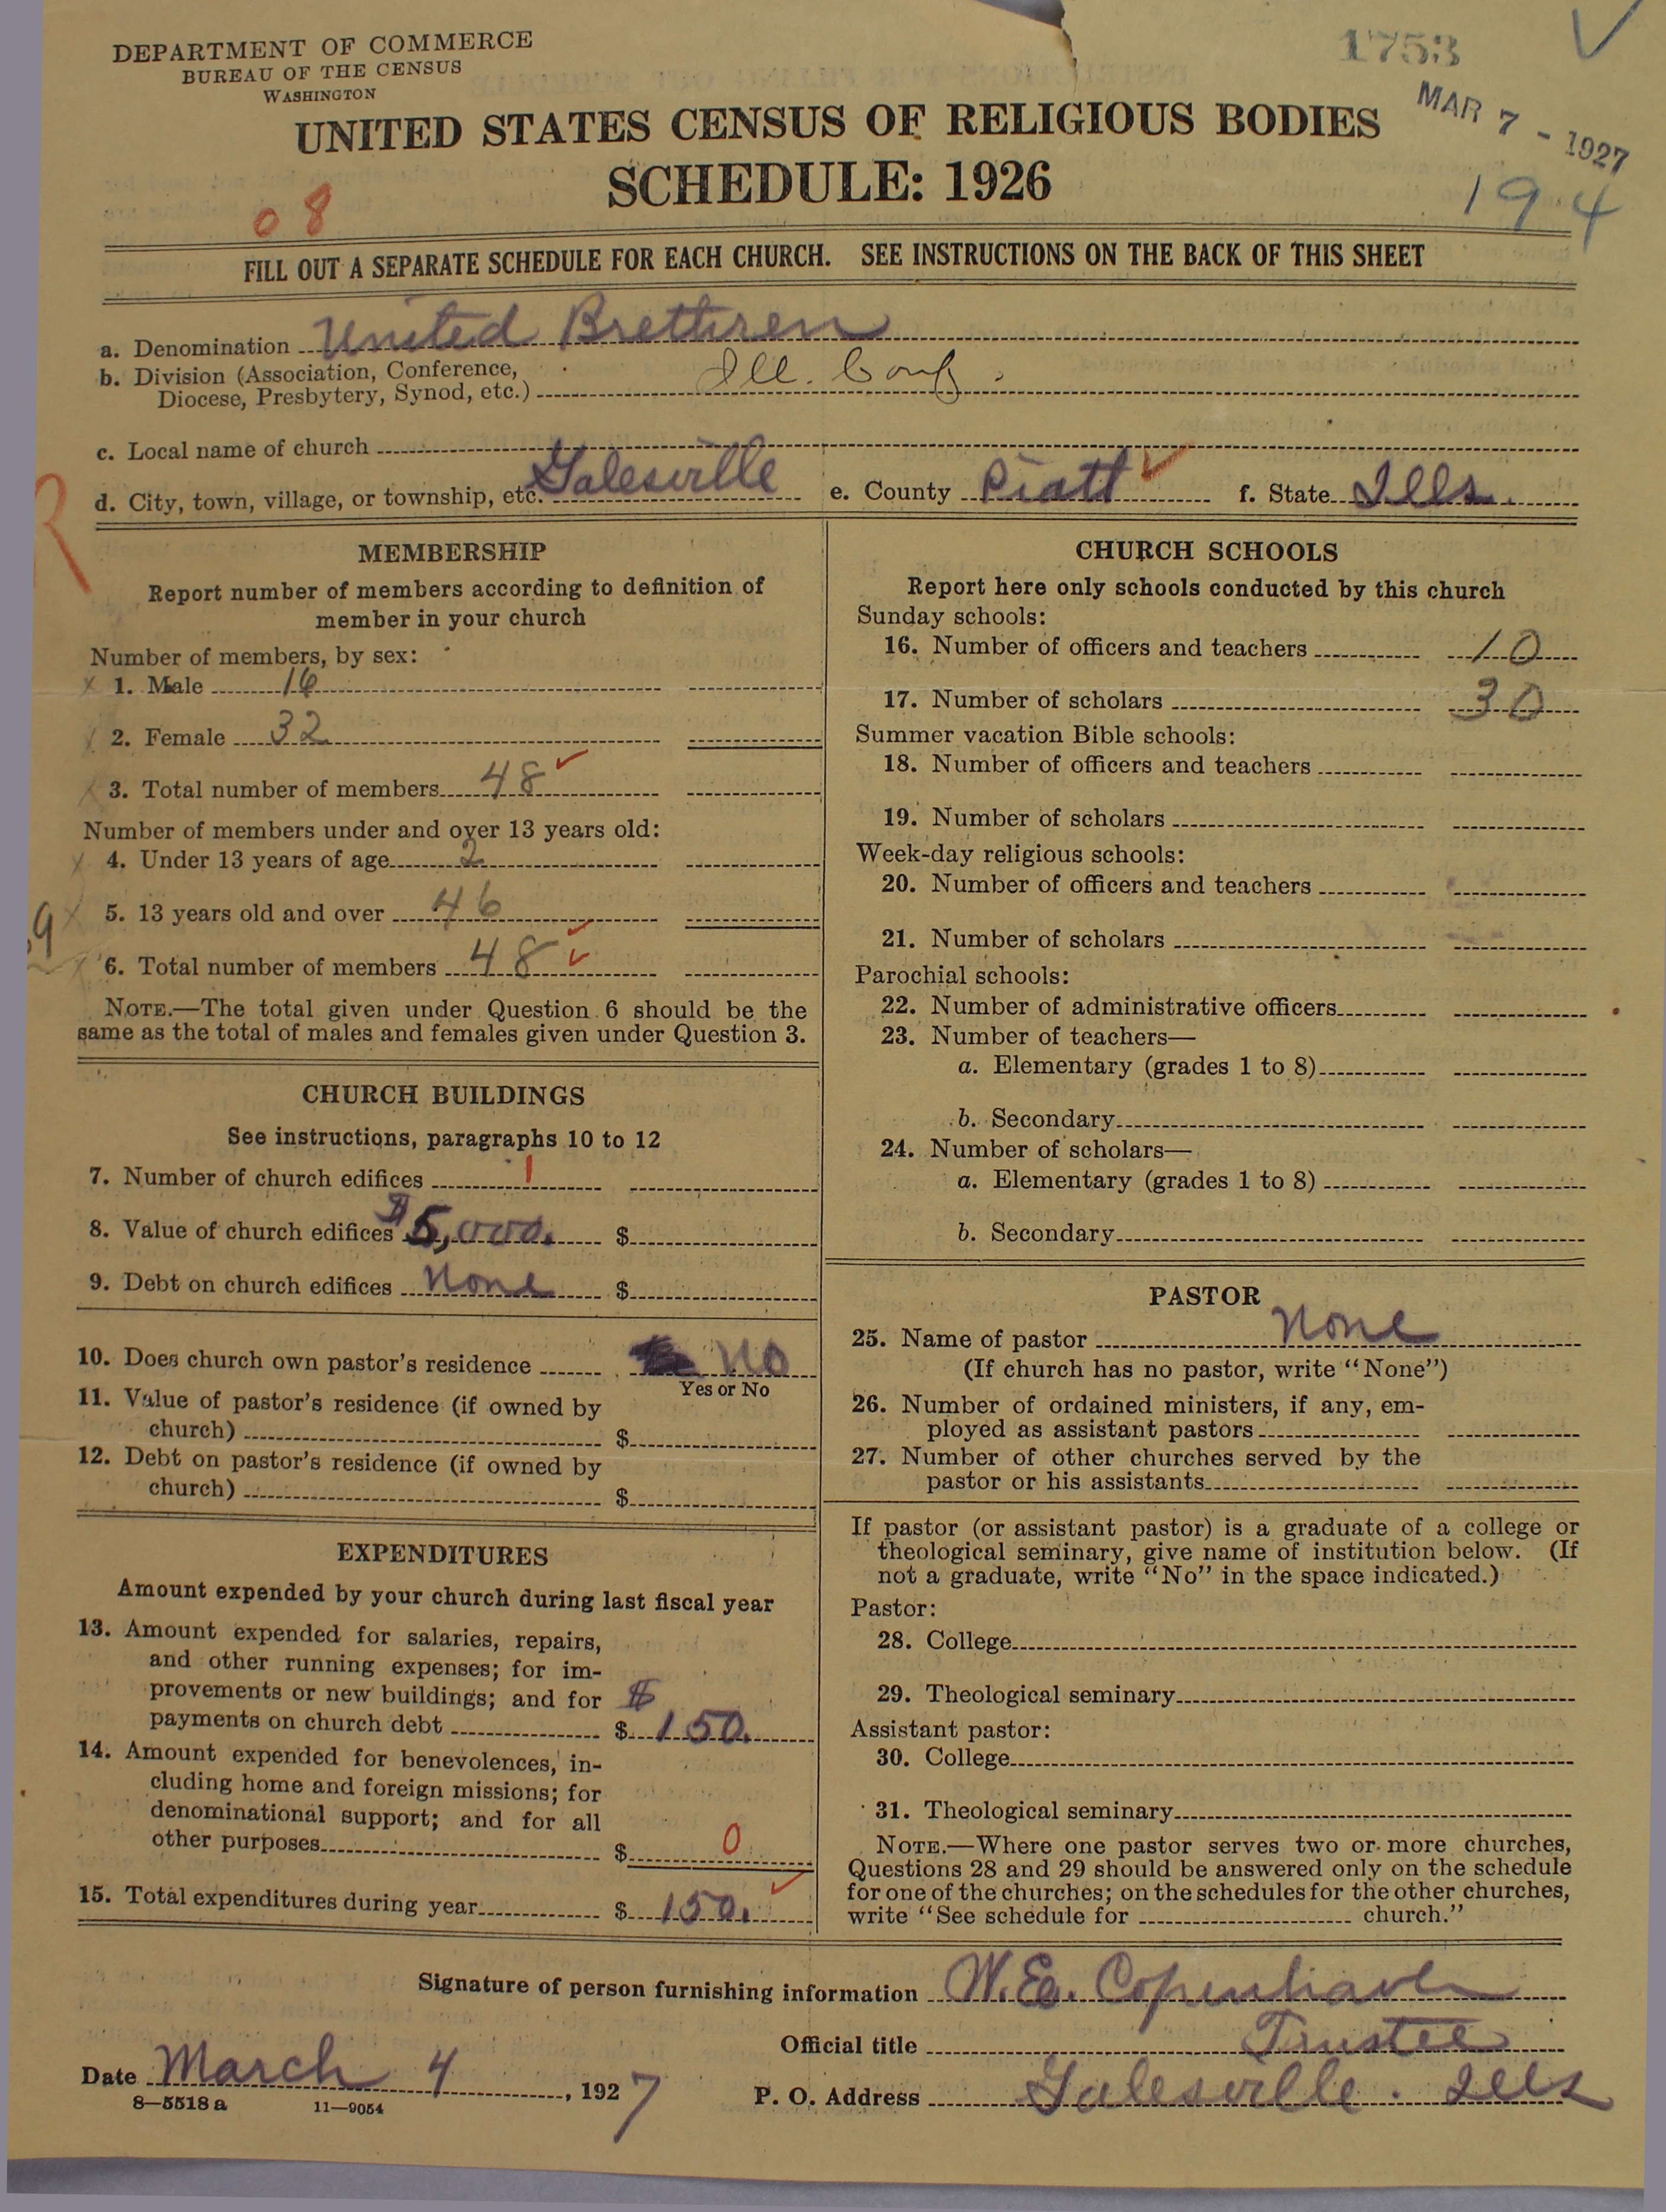 DEPARTMENT OF COMMERCE
BUREAU OF THE CENSUS
WASHINGTON
1753
MAR 7 - 1927
UNITED STATES CENSUS OF RELIGIOUS BODIES
SCHEDULE: 1926
194
08
FILL OUT A SEPARATE SCHEDULE FOR EACH CHURCH. SEE INSTRUCTIONS ON THE BACK OF THIS SHEET
a. Denomination United Brethren
b. Division (Association, Conference,
Diocese, Presbytery, Synod, etc.) Ill. Conf.
c. Local name of church
d. City, town, village, or township, etc. Galesville e. County Piatt f. State Ills.
R
MEMBERSHIP
Report number of members according to definition of
member in your church
Number of members, by sex:
1. Male 16
2. Female 32
3. Total number of members 48
Number of members under and over 13 years old:
4. Under 13 years of age 2
5. 13 years old and over 46
6. Total number of members 48
NOTE.—The total given under Question 6 should be the
same as the total of males and females given under Question 3.
CHURCH BUILDINGS
See instructions, paragraphs 10 to 12
7. Number of church edifices 1
8. Value of church edifices $5,000. $
9. Debt on church edifices None $
10. Does church own pastor's residence No
Yes or No
11. Value of pastor's residence (if owned by
church) $
12. Debt on pastor's residence (if owned by
church) $
EXPENDITURES
Amount expended by your church during last fiscal year
13. Amount expended for salaries, repairs,
and other running expenses; for im-
provements or new buildings; and for $
payments on church debt $ 150.
14. Amount expended for benevolences, in-
cluding home and foreign missions; for
denominational support; and for all
other purposes $ 0
15. Total expenditures during year $ 150.
CHURCH SCHOOLS
Report here only schools conducted by this church
Sunday schools:
16. Number of officers and teachers 10
17. Number of scholars 30
Summer vacation Bible schools:
18. Number of officers and teachers
19. Number of scholars
Week-day religious schools:
20. Number of officers and teachers
21. Number of scholars
Parochial schools:
22. Number of administrative officers
23. Number of teachers—
a. Elementary (grades 1 to 8)
b. Secondary
24. Number of scholars—
a. Elementary (grades 1 to 8)
b. Secondary
PASTOR
25. Name of pastor None
(If church has no pastor, write "None")
26. Number of ordained ministers, if any, em-
ployed as assistant pastors
27. Number of other churches served by the
pastor or his assistants
If pastor (or assistant pastor) is a graduate of a college or
theological seminary, give name of institution below. (If
not a graduate, write "No" in the space indicated.)
Pastor:
28. College
29. Theological seminary
Assistant pastor:
30. College
31. Theological seminary
NOTE.—Where one pastor serves two or more churches,
Questions 28 and 29 should be answered only on the schedule
for one of the churches; on the schedules for the other churches,
write "See schedule for church."
Signature of person furnishing information W.E. Copenhaver
Official title Trustee
Date March 4, 1927 P. O. Address Galesville. Ills
8—5518 a 11—9054